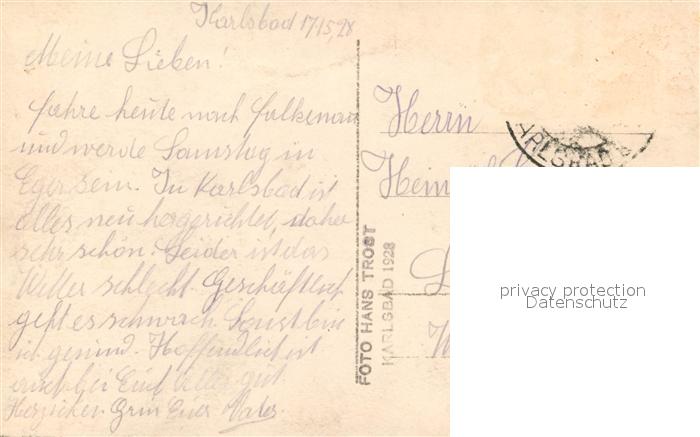 Karlsbad 17/5, 28
Meine Lieben!
fahre heute nach Falkenau
und werde Samstag in
Eger sein. In Karlsbad ist
alles neu hergerichtet, daher
sehr schön. Leider ist das
Wetter schlecht. Geschäftlich
geht es schwach. Sonst bin
ich gesund. Hoffendlich ist
auch bei Euch alles gut
Herzlichen Gruss Euer Vater.
FOTO HANS TROST
KARLSBAD 1928
Herrn
privacy protection
Datenschutz